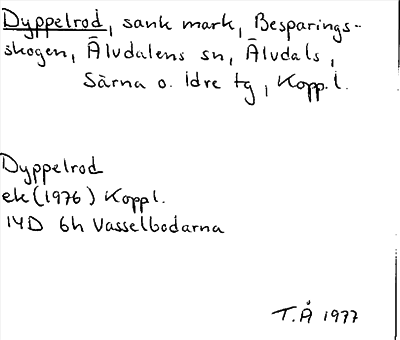 Dyppelrod, sank mark, Besparings-
skogen, Älvdalens sn, Älvdals,
Särna o. Idre tg, Kopp. l.
Dyppelrod
ek (1976) Koppl.
14D 6h Vasselbodarna
T.Å 1977